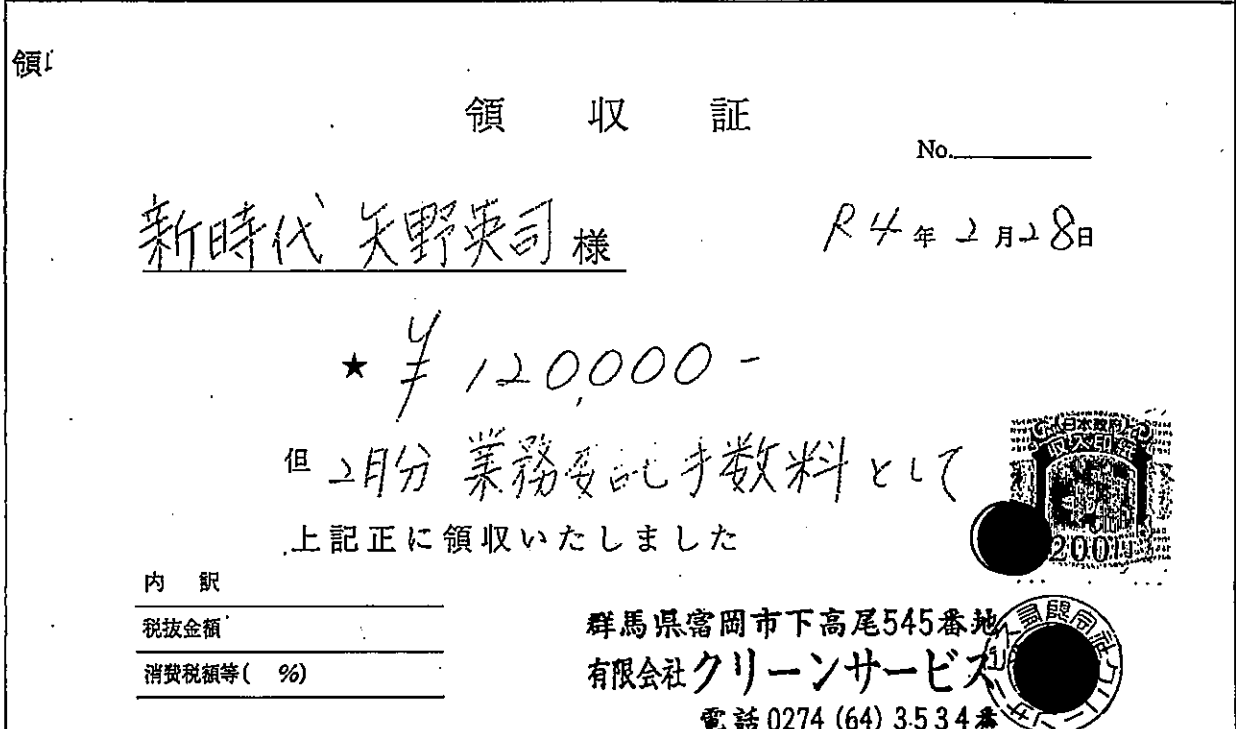 領
領収証
No.
新時代 矢野英司 様
R4年2月28日
★ ¥120,000-
但 2月分 業務委託手数料として
上記正に領収いたしました
日本政府
収入印紙
200円
内訳
税抜金額
消費税額等( %)
群馬県富岡市下高尾545番地
有限会社クリーンサービス
電話0274(64)3534番